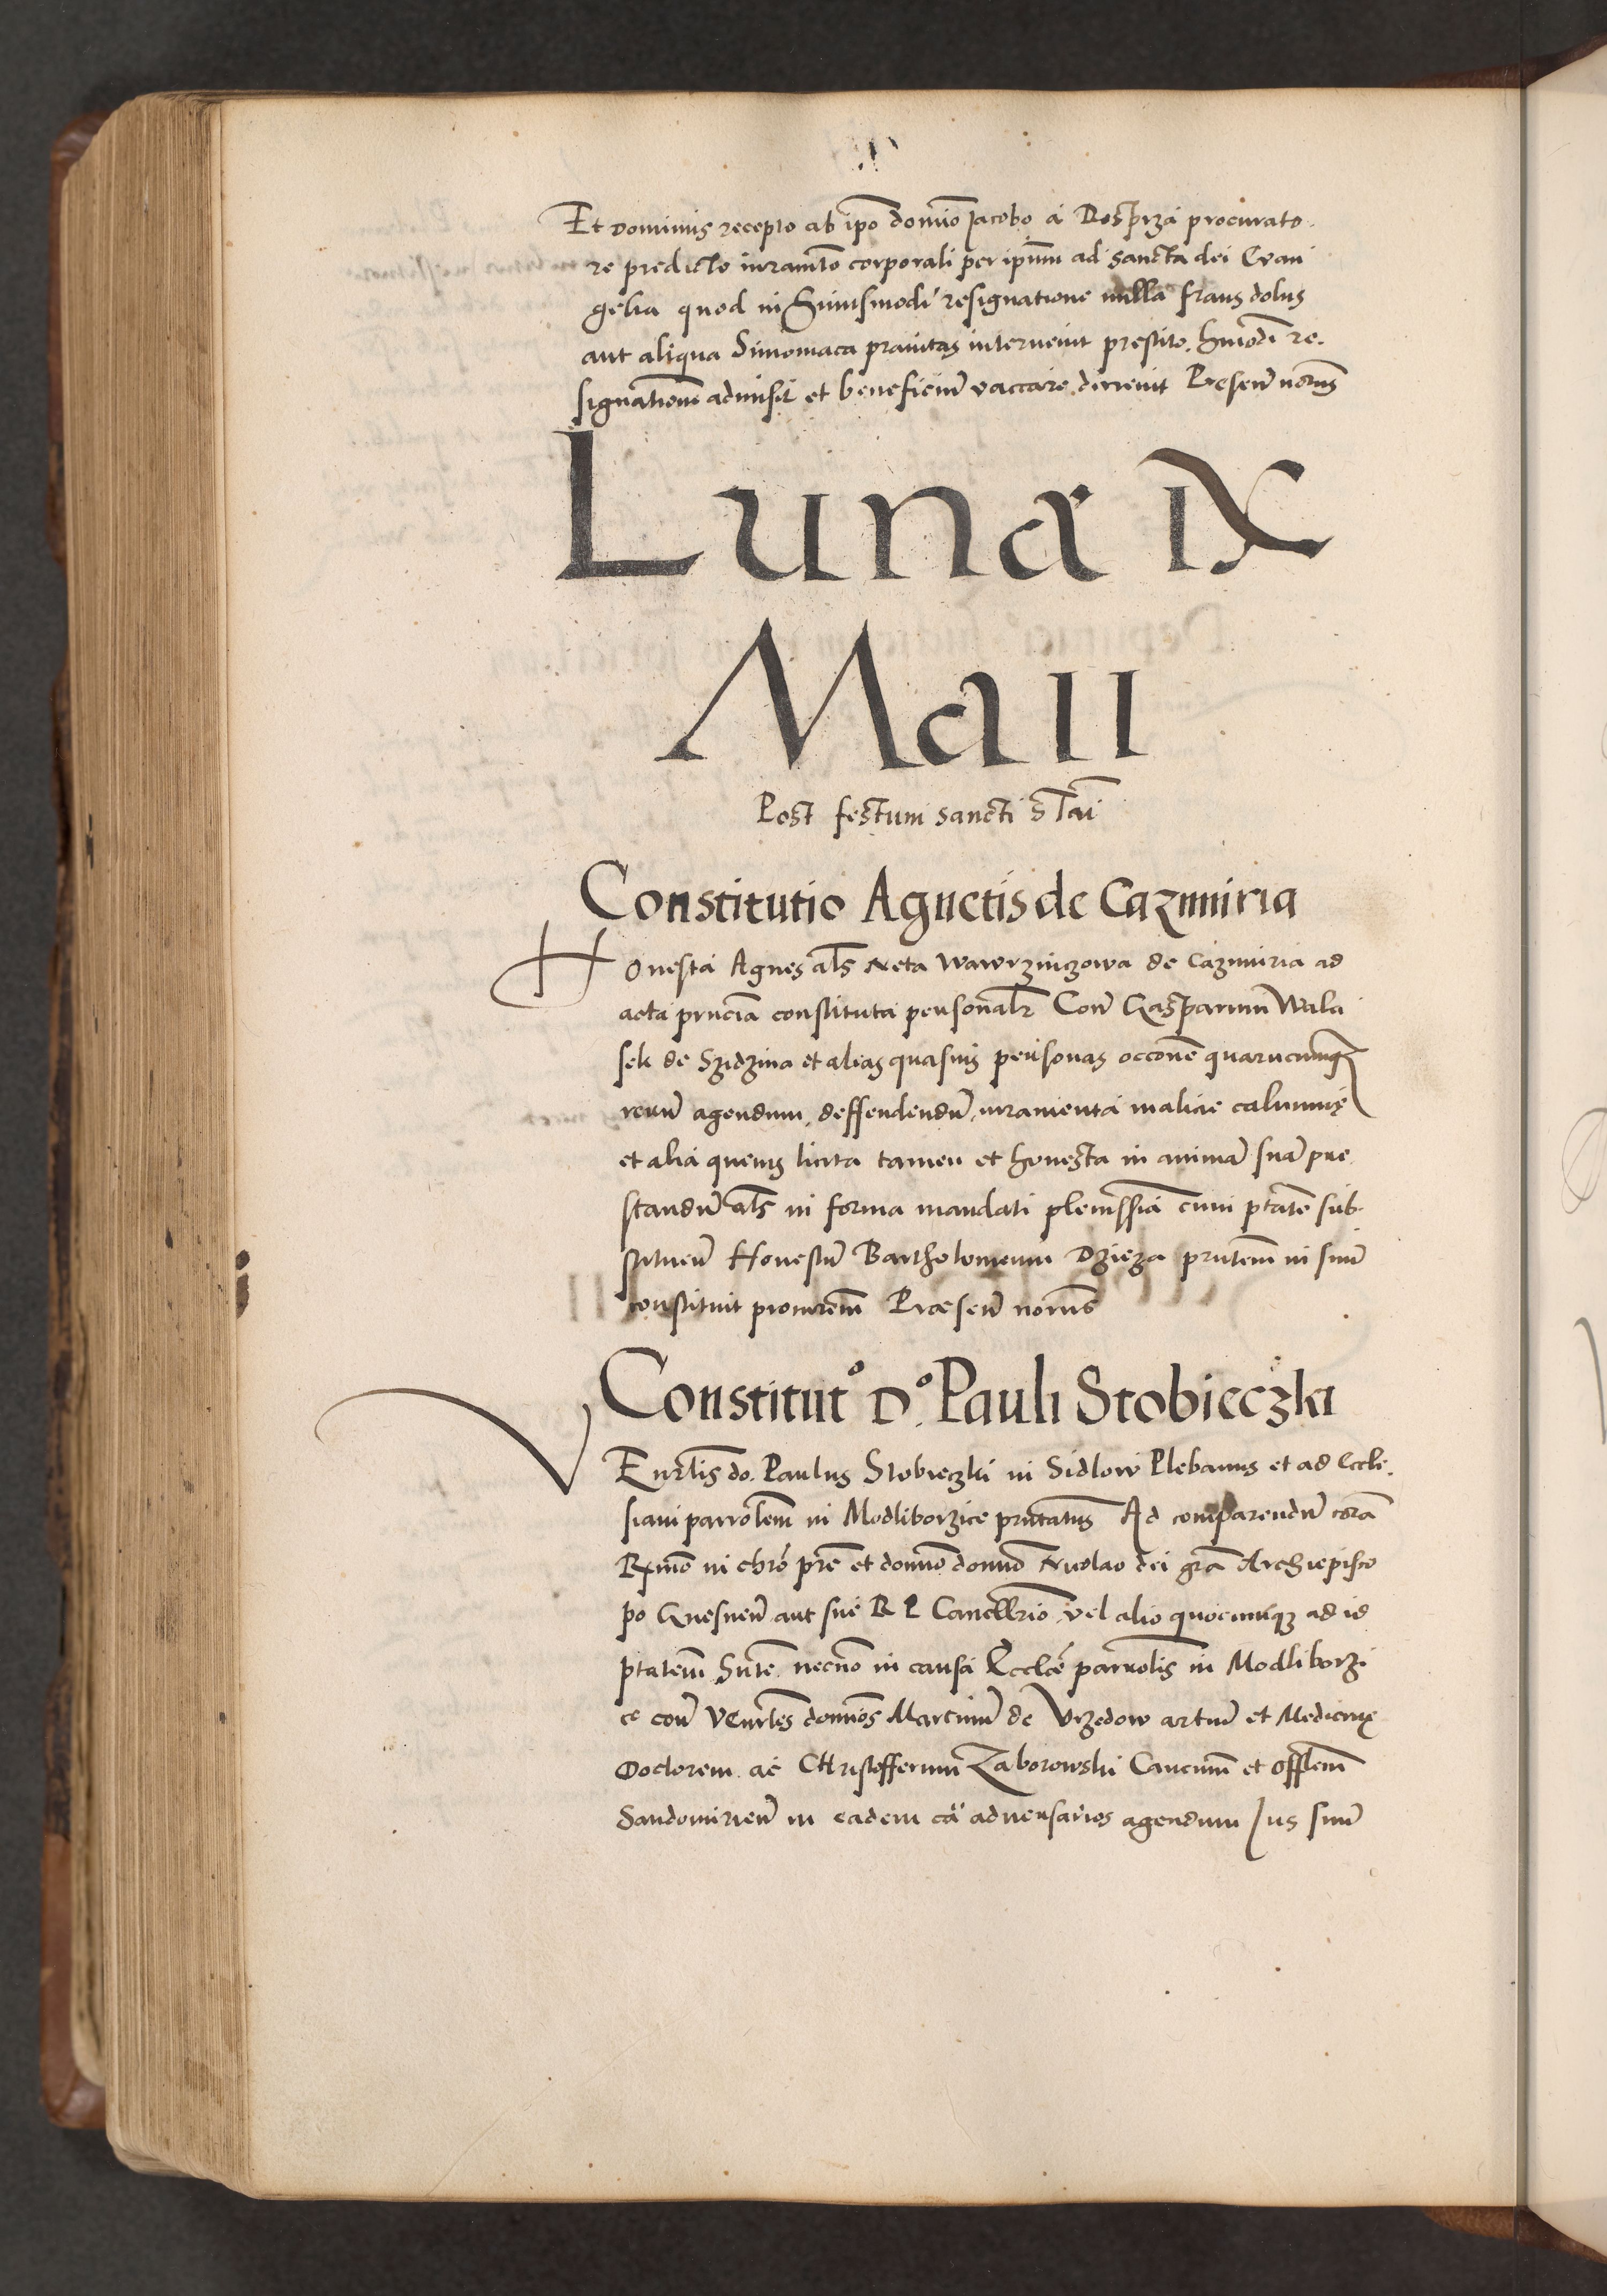 Et Dominus recepto ab ip̄o domīo Jacobo a Dosprza procurato
re predicto iuram̄to corporali per ip̄um ad sancta dei Evan
gelia quod in huiusmodi resignatione nulla fraus dolus
aut aliqua Simoniaca pravitas intervenit prestito, hmōdi re-
signationē admisit et beneficiū vaccare decrevit Presen̄ notriis
Luna IX
Maii
Post festum sancti Stāi
Constitutio Agnetis de Cazmiria
Honesta Agnes al̄s Neta Wawrzinczowa de Cazmiria ad
acta pn̄cia constituta personalr̄ Con̄ Gasparum Wala
sek de Szidzina et alias quasvis personas occōne quarucunq
rerū agendum, deffendendū, iuramenta maliciæ calumniæ
et alia quevis licita tamen et honesta in animā suā pre
standū al̄s in forma mandati plenissīa cum ptāte sub-
stituen̄ Honestū Bartholomeum Dzieza pn̄tem in suū
constituit procurēm Præsen̄ notriis
Constitutº Dº. Pauli Stobieczki
VEnr̄lis do. Paulus Stobieczki in Sidlow Plebanus et ad Eccle-
siam parrōlem in Modliborzice pn̄tatus Ad comparendū corā
Rx̄mo in chrō prē et domīo domīo Nicolao dei grā Archiepisco
po Gnesnen̄ aut sue R P Cancellrio vel alio quocunqz ad id
ptatem hn̄te necnō in causa Ecclēe parrolis in Modliborzi
ce con̄ Venrles domīos Martinū de Vrzedow artiū et Medicinæ
Doctorem ac Christofferum Zaborowski Canc̄um et offlem
Sandomirien̄ in eadem cā adversarios agendum Jus suū